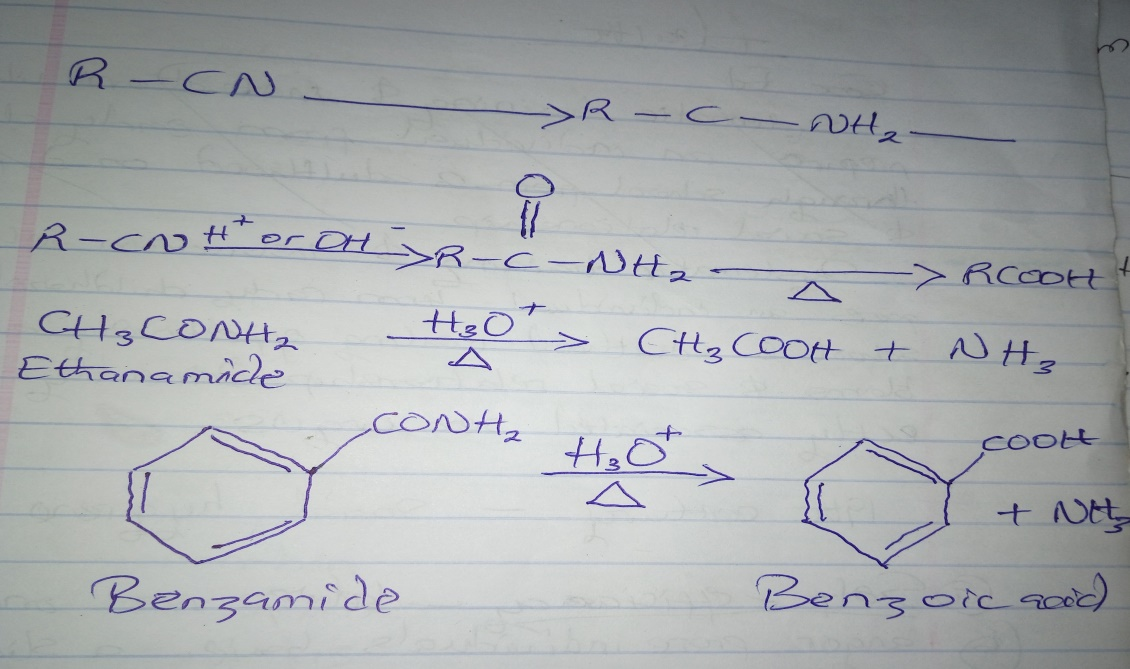 R - CN ⟶ R - C - NH₂ —
O
||
R-CN H⁺ or OH⁻ ⟶ R-C-NH₂ ⟶ △ RCOOH +
CH₃CONH₂ H₃O⁺ ⟶ △ CH₃COOH + NH₃
Ethanamide
CONH₂ H₃O⁺ ⟶ △ COOH
+ NH₃
Benzamide Benzoic acid